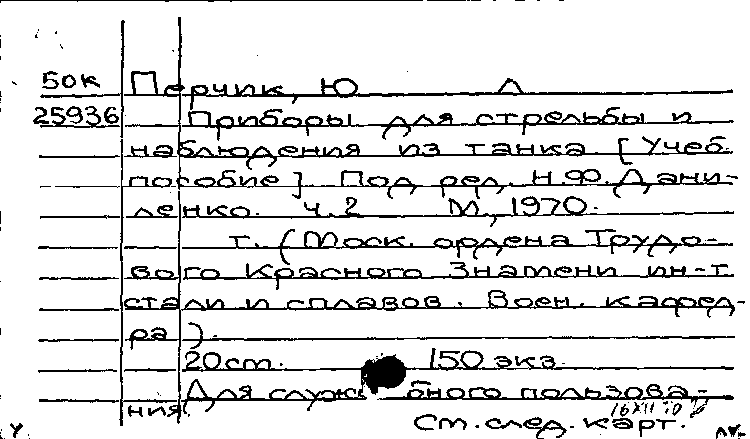 50К Перчик, Ю Л
25936 Приборы для стрельбы и
наблюдения из танка. [Учеб.
пособие]. Под ред. Н.Ф. Дани-
ленко. Ч.2 М., 1970.
т. (Моск. ордена Трудо-
вого Красного Знамени ин-т
стали и сплавов. Воен. кафед-
ра).
20 ст. 150 экз.
Для служебного пользова-
ния.
См. след. карт.